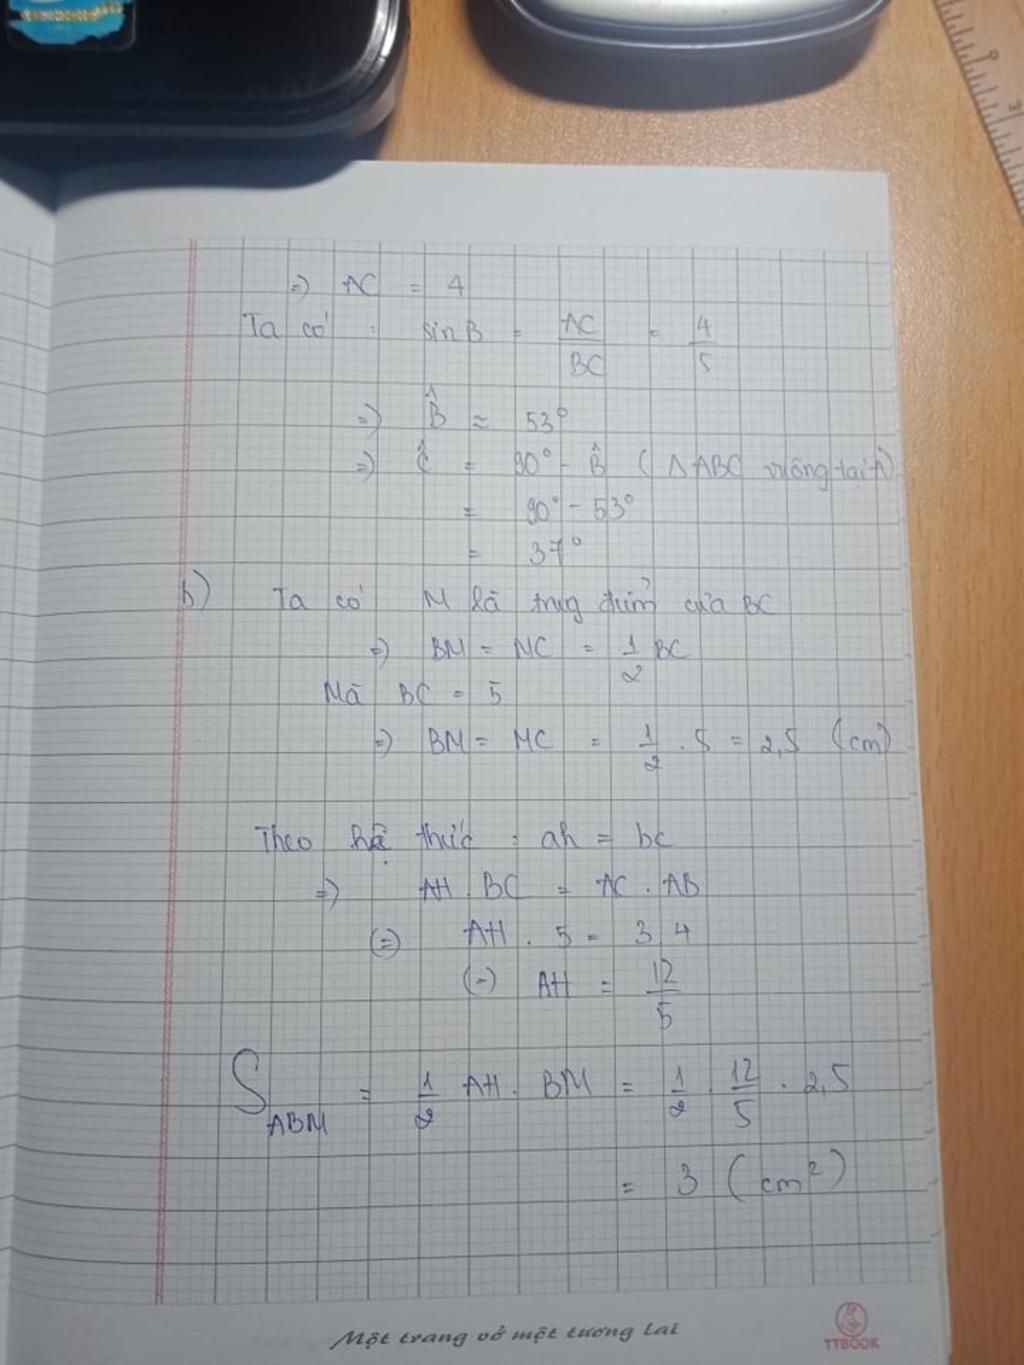 => AC = 4
Ta có : sin B = AC/BC = 4/5
=> B̂ ≈ 53°
=> Ĉ = 90° - B̂ (Δ ABC vuông tại A)
= 90° - 53°
= 37°
b) Ta có M là trug điểm của BC
=> BM = MC = 1/2 BC
Mà BC = 5
=> BM = MC = 1/2 . 5 = 2,5 (cm)
Theo hệ thức : ah = bc
=> AH . BC = AC . AB
(=) AH . 5 = 3 4
(=) AH = 12/5
S ABM = 1/2 AH . BM = 1/2 . 12/5 . 2,5
= 3 (cm²)
Một trang vở một tương lai
TTBOOK